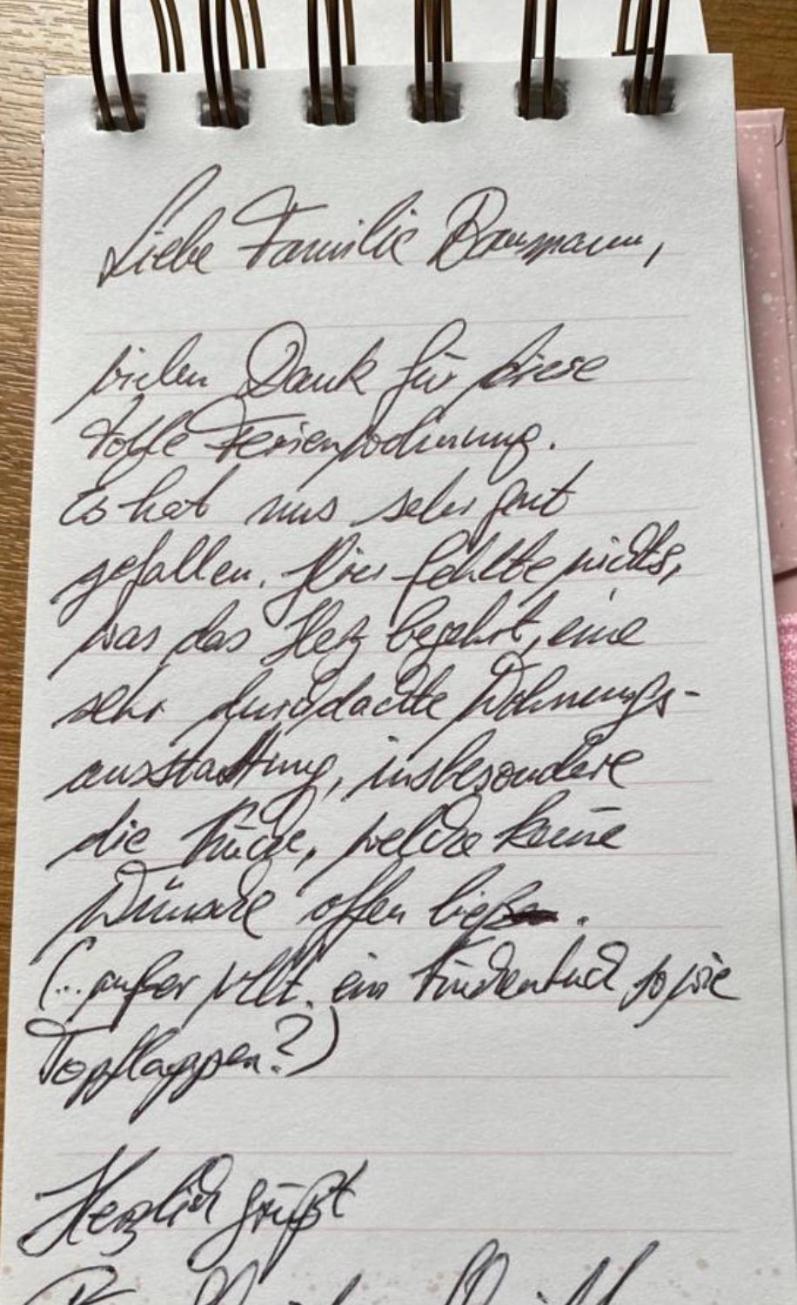 Liebe Familie Baumann,
vielen Dank für diese
tolle Ferienwohnung.
Es hat uns sehr gut
gefallen. Hier fehlte nichts,
was das Herz begehrt, eine
sehr durchdachte Wohnungs-
ausstattung, insbesondere
die Küche, welche keine
Wünsche offen ließ.
(.. außer vllt. ein Küchentuch sowie
Topflappen?)
Herzlich grüßt